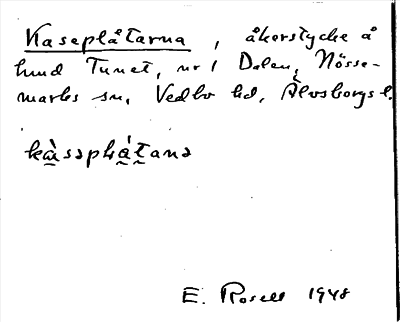 Kaseplåtarna, åkerstycke å
hmd Tunet, nr 1 Dalen, Nösse-
marks sn, Vedbo hd, Älvsborgs l.
kàsəplátana
E. Rosell 1948